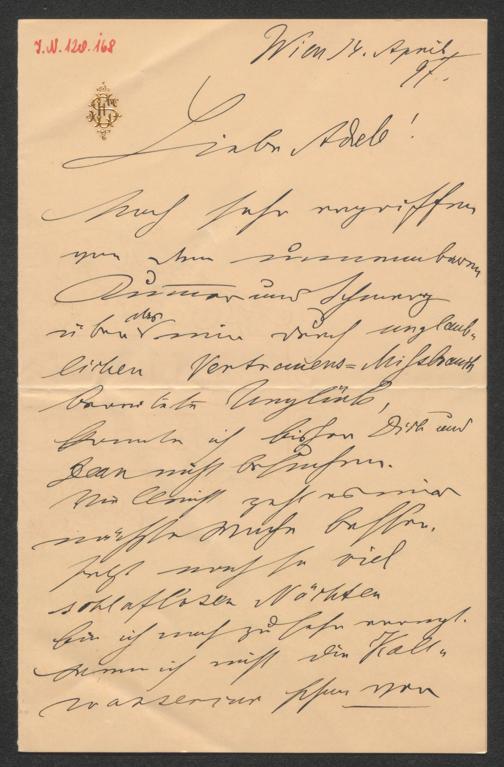 J.N. 120.168
Wien 14. April
97.
Liebe Adele!
Noch sehr ergriffen
von dem unnennbaren
Kummer und Schmerz
über das mir durch unglaub-
lichen Vertrauens=Missbrauch
bereitete Unglück,
konnte ich bisher Dich und
Jean nicht besuchen.
Vielleicht geht es mir
nächste Woche besser.
Jetzt nach so viel
schlaflosen Nächten
bin ich noch zu sehr erregt.
wenn ich nicht die Kalt-
wassercur schon von